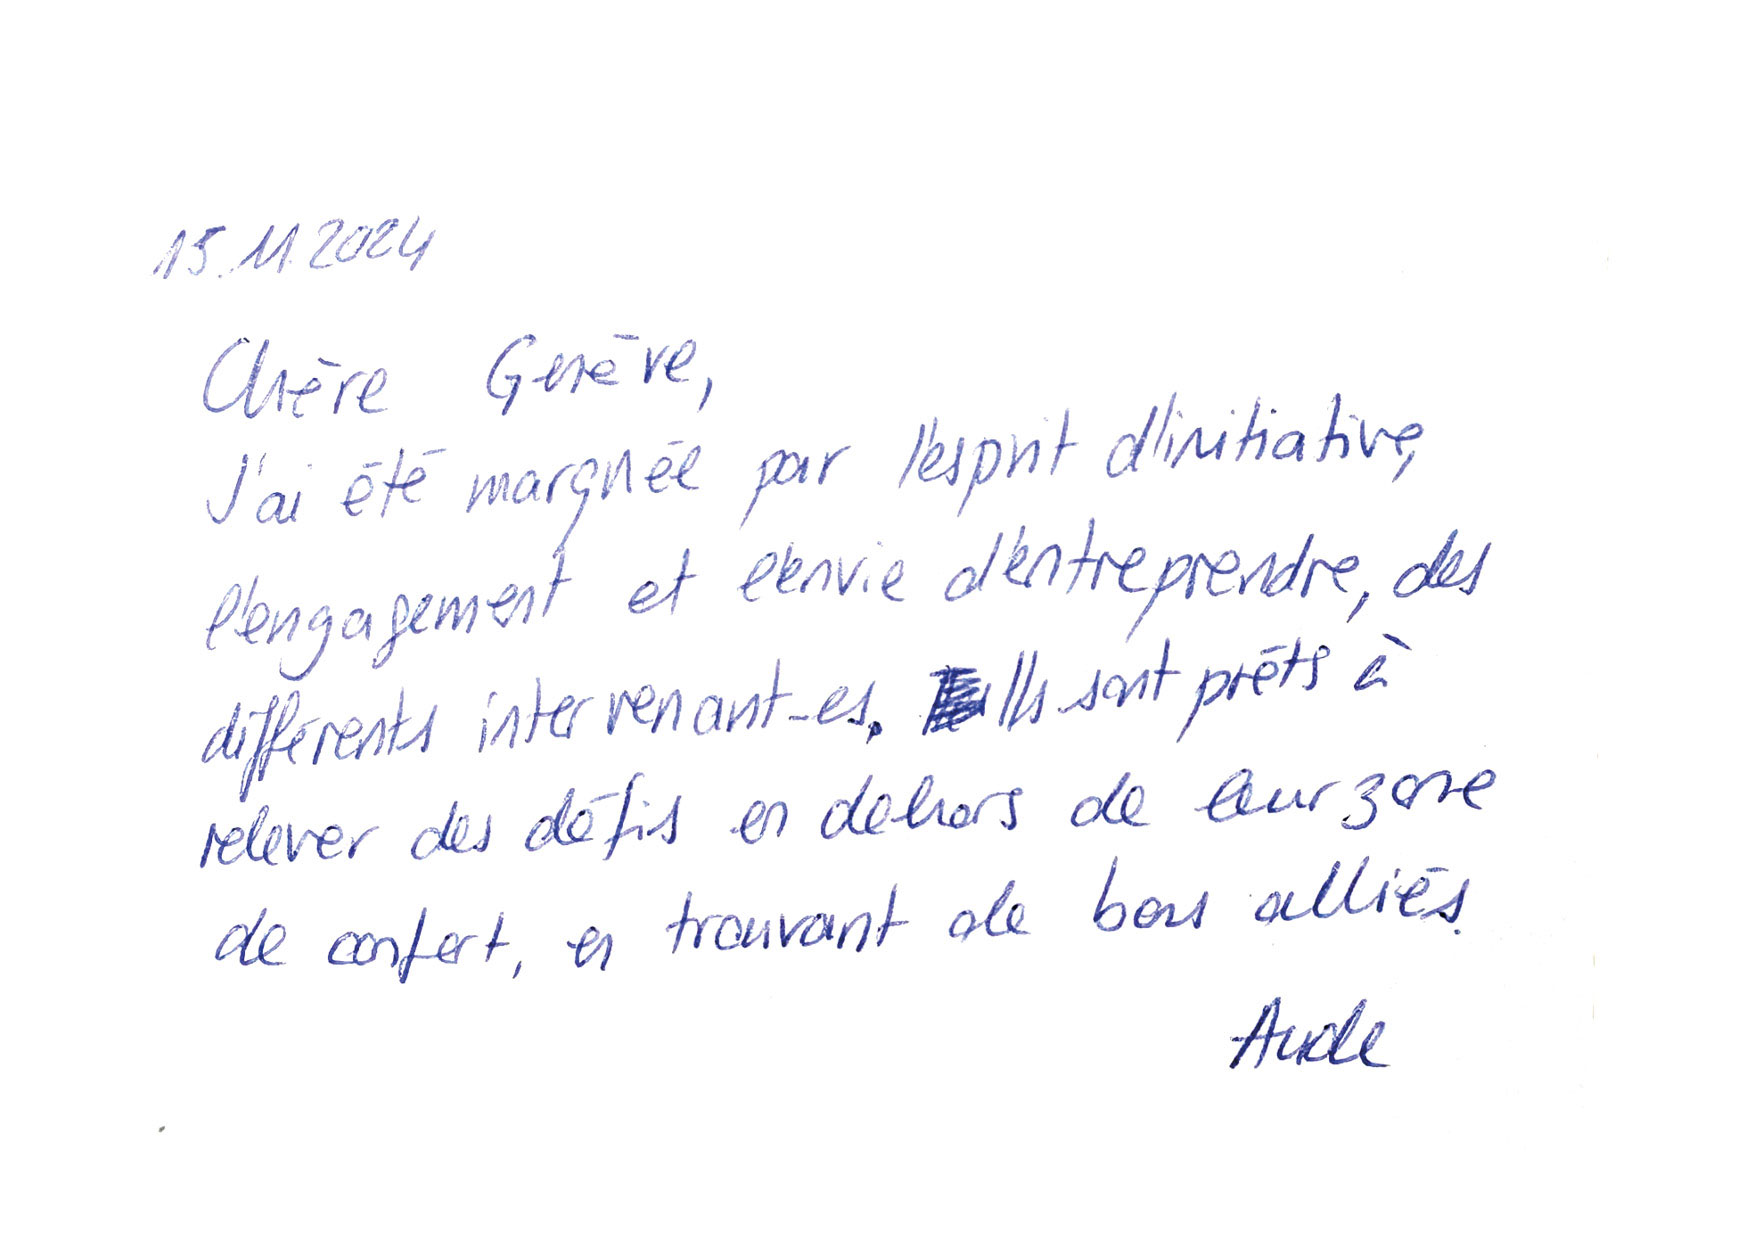 15.11.2024
Chère Genève,
J'ai été marquée par l'esprit d'initiative,
l'engagement et l'envie d'entreprendre, des
différents intervenant-es. Ils sont prêts à
relever des défis en dehors de leur zone
de confort, en trouvant de bons alliés.
Aude